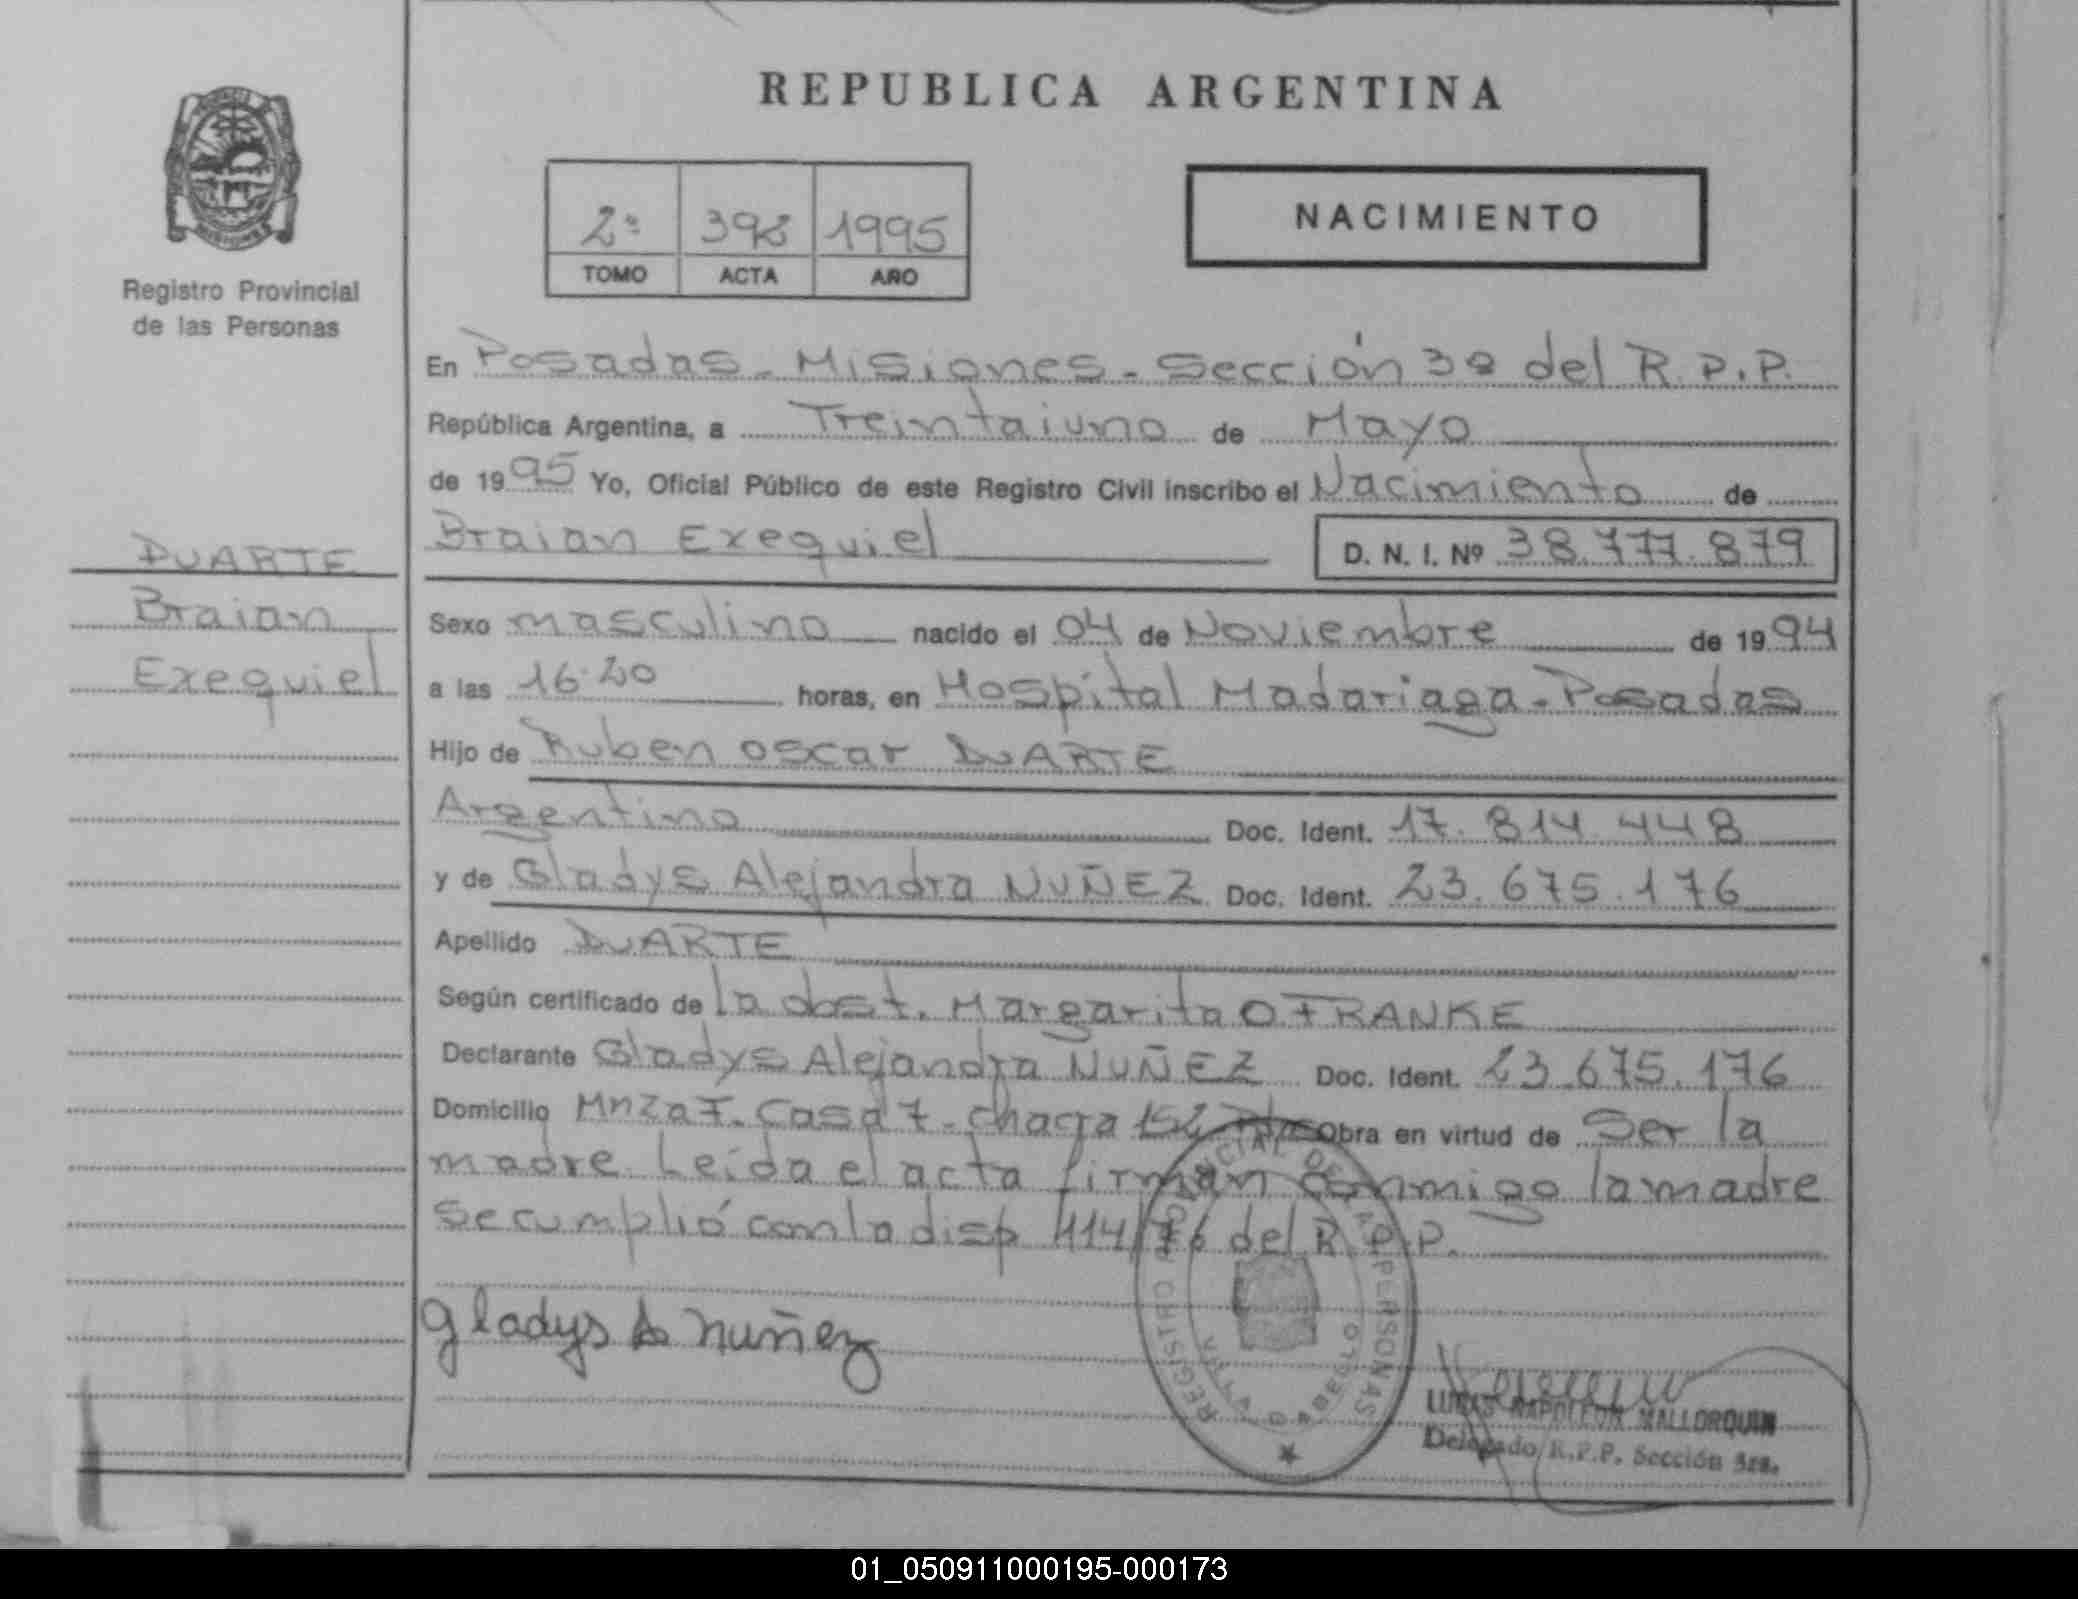 REPUBLICA ARGENTINA
Registro Provincial
de las Personas
2º 398 1995
TOMO ACTA AÑO
NACIMIENTO
DUARTE
Braian
Exequiel
En Posadas - Misiones - Sección 3º del R.P.P.
República Argentina, a Treintaiuno de Mayo
de 1995 Yo, Oficial Público de este Registro Civil inscribo el Nacimiento de
Braian Exequiel D. N. I. Nº 38.777.879
Sexo masculino nacido el 04 de Noviembre de 1994
a las 16:20 horas, en Hospital Madariaga - Posadas
Hijo de Ruben Oscar DUARTE
Argentino Doc. Ident. 17.814.448
y de Gladys Alejandra NUÑEZ Doc. Ident. 23.675.176
Apellido DUARTE
Según certificado de la obst. Margarita O FRANKE
Declarante Gladys Alejandra NUÑEZ Doc. Ident. 23.675.176
Domicilio Mnza F. Casa 7 - chacra 152 Obra en virtud de Ser la
madre. Leída el acta firman conmigo la madre
Se cumplió con la disp 114/76 del R.P.P.
Gladys A nuñez
REGISTRO PROVINCIAL DE LAS PERSONAS
MALLORQUIN
Delegado R.P.P. Sección 3ra.
01_050911000195-000173